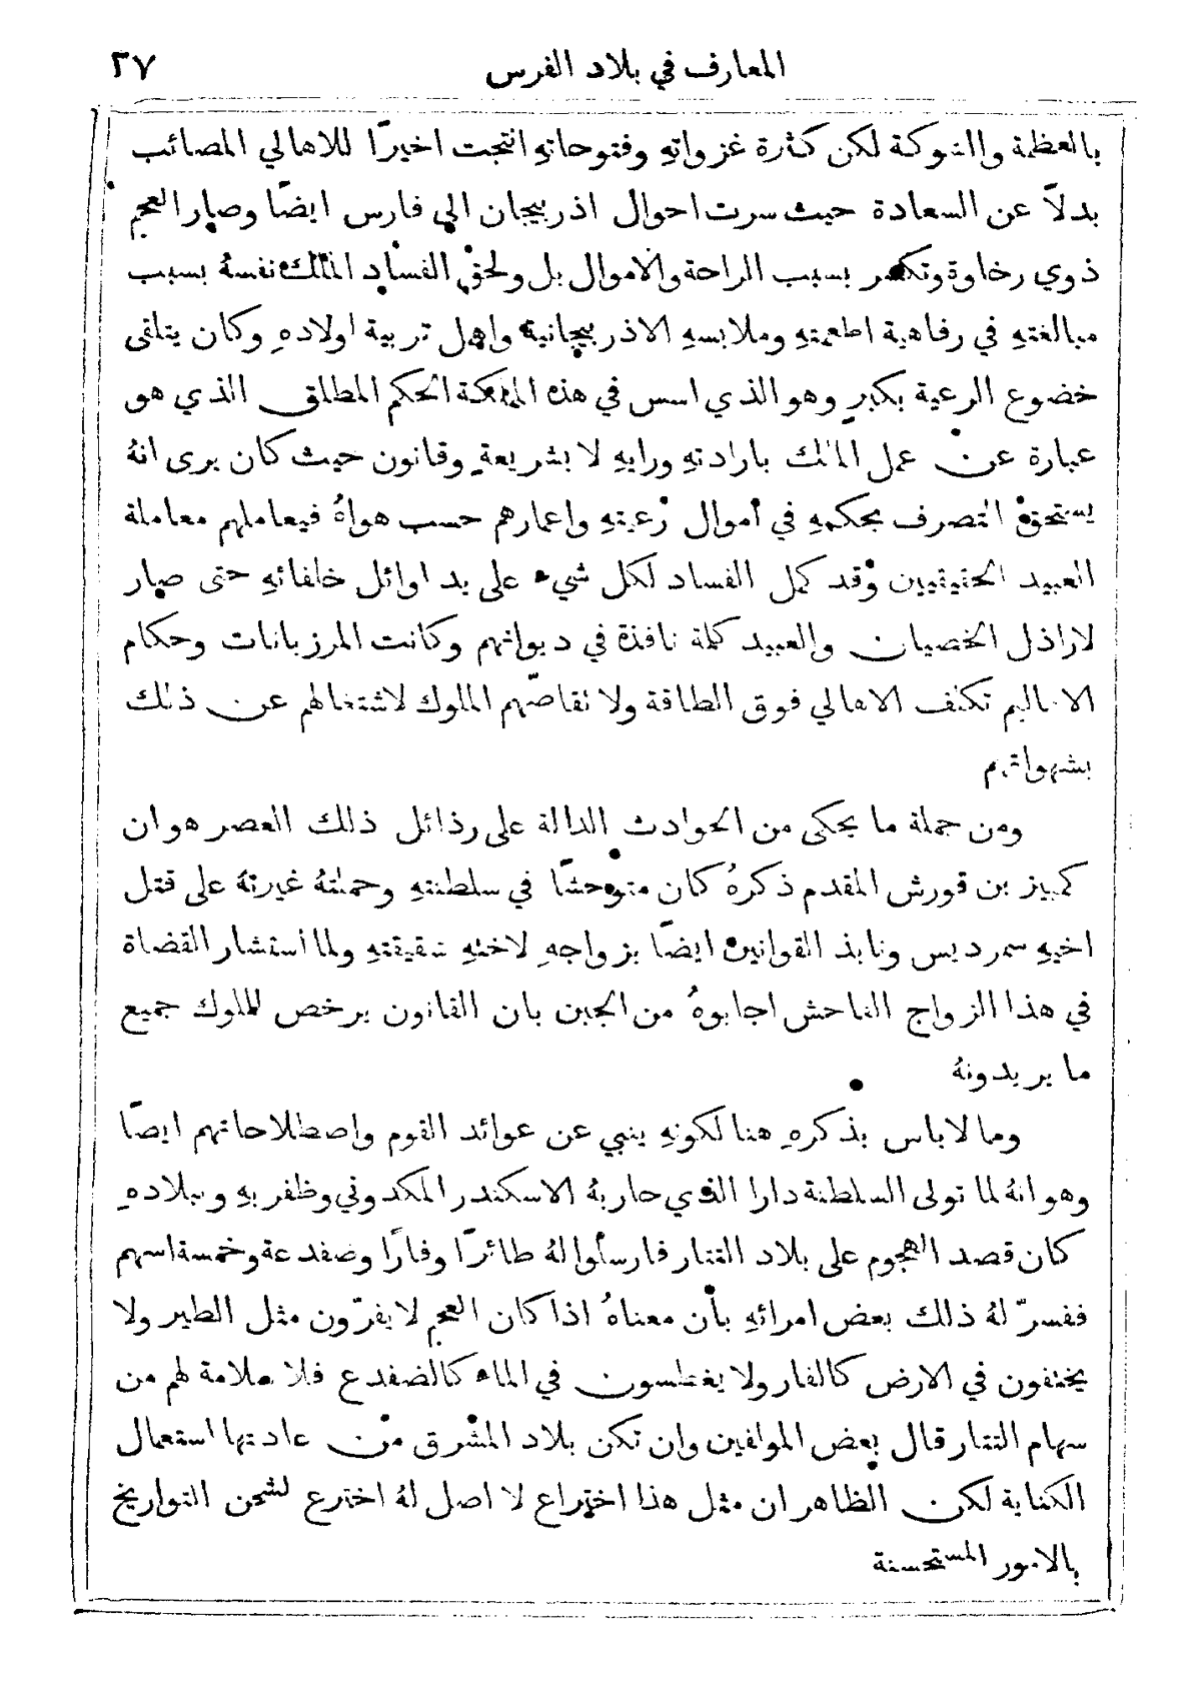 المعارف في بلاد الفرس ٢٧
بالعظمة والشوكة لكن كثرة غزواتهِ وفتوحاتهِ انتجت اخيرًا للاهالي المصائب
بدلاً عن السعادة حيث سرت احوال اذربيجان الى فارس ايضًا وصار العجم
ذوي رخاوة وتكسر بسبب الراحة والاموال بل ولحق الفساد الملك نفسهُ بسبب
مبالغتهِ في رفاهية اطعمتهِ وملابسهِ الاذربيجانية واهمل تربية اولادهِ وكان يتلقى
خضوع الرعية بكبرٍ وهو الذي اسس في هذه المملكة الحكم المطلق الذي هو
عبارة عن عمل الملك بارادتهِ ورايهِ لا بشريعةٍ وقانون حيث كان يرى انهُ
يستحق التصرف بحكمهِ في أموال رعيتهِ واعمارهم حسب هواهُ فيعاملهم معاملة
العبيد الحقيقيين وقد كمل الفساد لكل شيء على يد اوائل خلفائهِ حتى صار
لاراذل الخصيان والعبيد كلمة نافذة في ديوانهم وكانت المرزبانات وحكام
الاقاليم تكلف الاهالي فوق الطاقة ولا تقاصّهم الملوك لاشتغالهم عن ذلك
بشهواتهم
ومن جملة ما يحكى من الحوادث الدالة على رذائل ذلك العصر هو ان
كمبيز بن قورش المقدم ذكرهُ كان متوحشًا في سلطنتهِ وحملتهُ غيرتهُ على قتل
اخيهِ سمرديس ونابذ القوانين ايضًا بزواجهِ لاختهِ شقيقتهِ ولما أستشار القضاة
في هذا الزواج الفاحش اجابوهُ من الجبن بان القانون يرخص للملوك جميع
ما يريدونهُ
وما لاباس بذكرهِ هنا لكونهِ ينبي عن عوائد القوم واصطلاحاتهم ايضًا
وهو انهُ لما تولى السلطنة دارا الذي حاربهُ الاسكندر المكدوني وظفر بهِ وببلادهِ
كان قصد الهجوم على بلاد التتار فارسلوا لهُ طائرًا وفارًا وضفدعة وخمسة اسهم
ففسرّ لهُ ذلك بعض امرائهِ بأن معناهُ اذا كان العجم لا يفرّون مثل الطير ولا
يختفون في الارض كالفار ولا يغطسون في الماء كالضفدع فلا سلامة لهم من
سهام التتار قال بعض المولفين وان تكن بلاد المشرق من عادتها استعمال
الكناية لكن الظاهر ان مثل هذا اختراع لا اصل لهُ اخترع لشحن التواريخ
بالامور المستحسنة